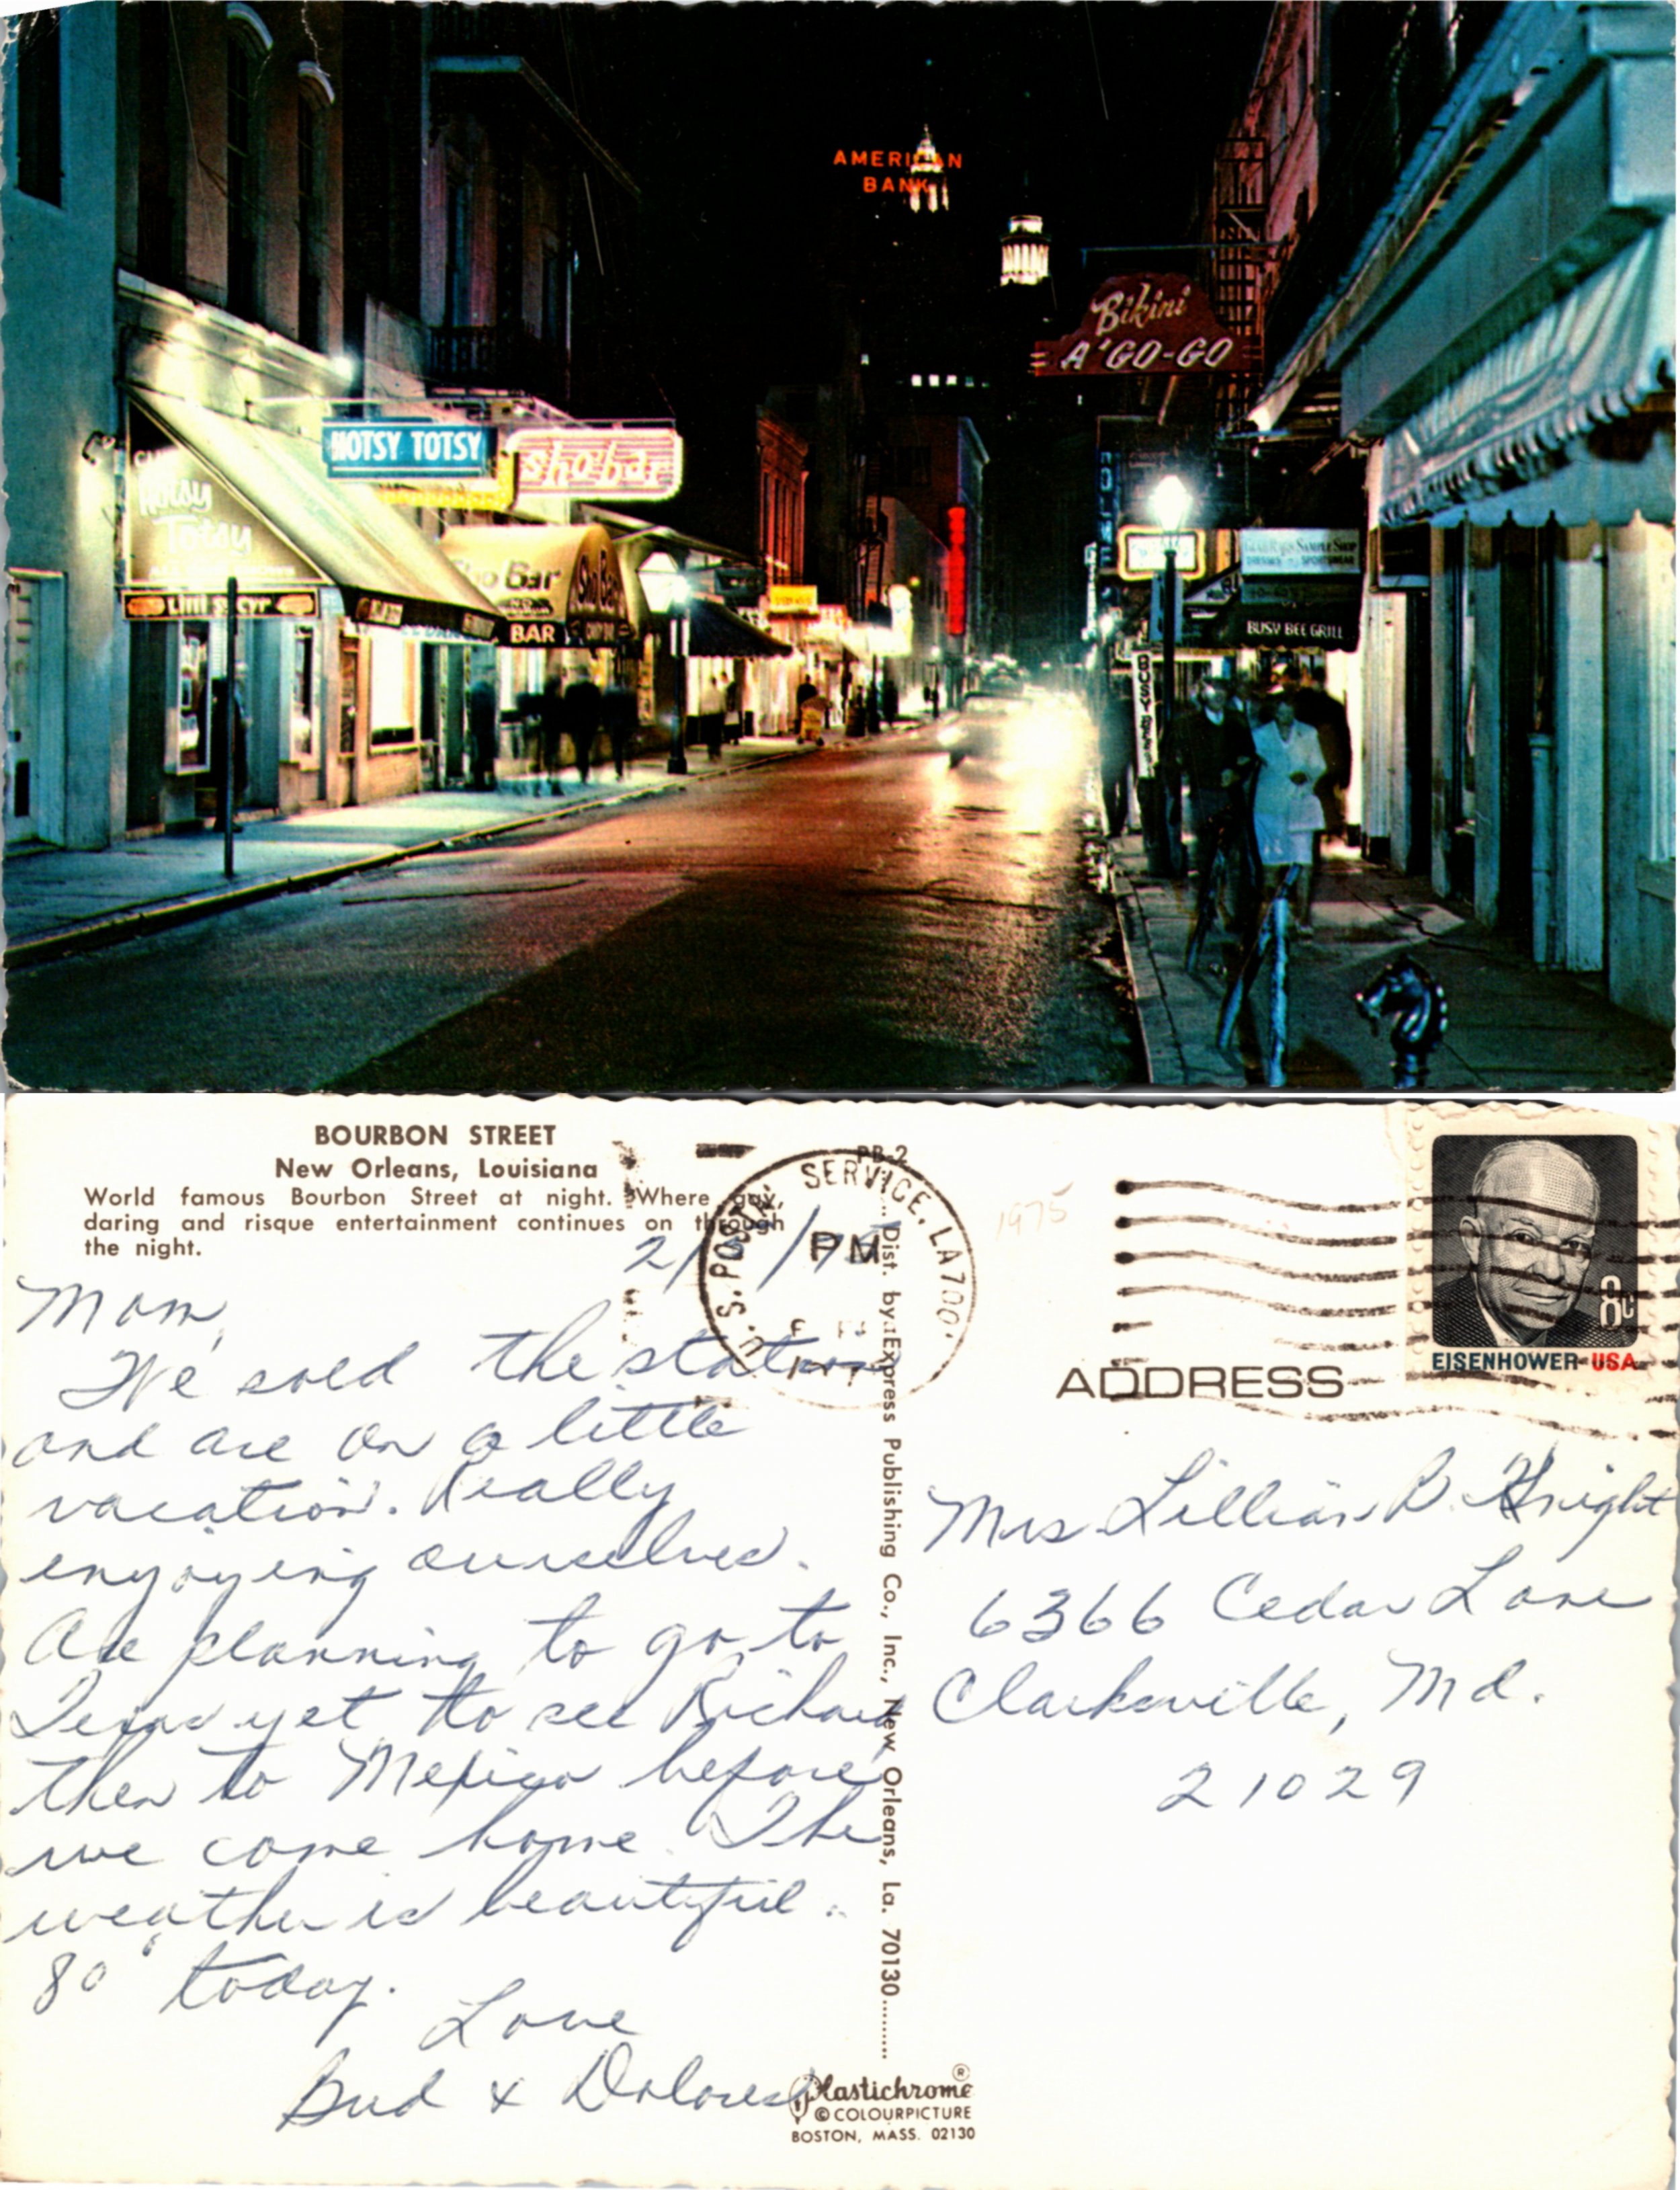 AMERICAN
BANK
Bikini
A'GO-GO
HOTSY TOTSY
sho'bar
Hotsy
Totsy
Lilli St. Cyr
Sho Bar
Sho Bar
BAR
SAMPLE SHOP
BUSY BEE GRILL
BUSY BEE
BOURBON STREET
New Orleans, Louisiana
World famous Bourbon Street at night. Where gay,
daring and risque entertainment continues on through
the night.
PB-2
U.S. POSTAL SERVICE, LA 700
PM
1975
8c
EISENHOWER-USA
ADDRESS
Mom,
We sold the station
and are on a little
vacation. Really
enjoying ourselves.
Are planning to go to
Texas yet to see Richard
then to Mexico before
we come home. The
weather is beautiful.
80° today.
Love
Bud & Dolores
Mrs Lillian B. Knight
6366 Cedar Lane
Clarksville, Md.
21029
Dist. by: Express Publishing Co., Inc., New Orleans, La. 70130
Plastichrome ®
© COLOURPICTURE
BOSTON, MASS. 02130